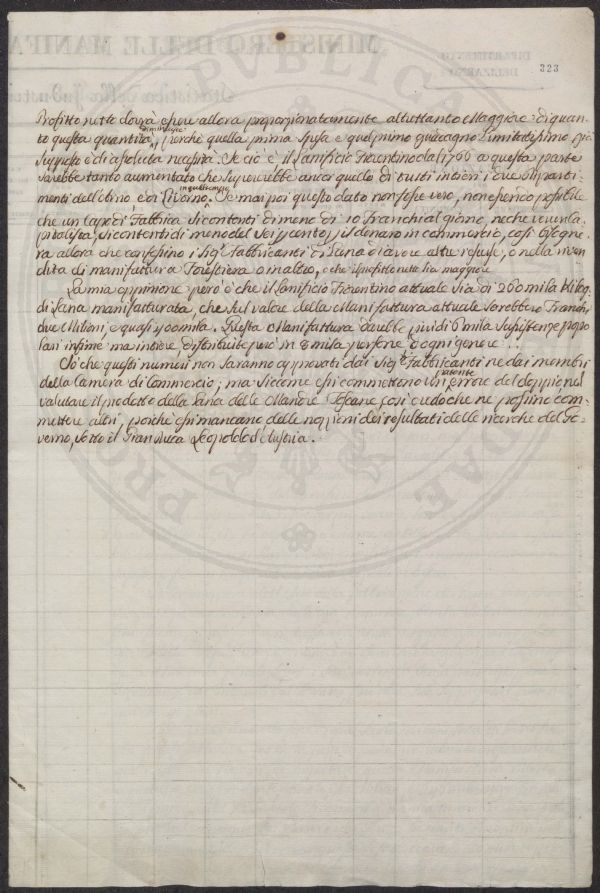 323
Profitto netto dovrà essere allora proporzionatamente altrettanto Maggiore di quan-
to questa quantità diminuisce, perchè quella prima spesa e quel primo guadagno limitatissimo già
supposto è di assoluta necessità. Se ciò è il Lanificio Fiorentino dal 1766 a questa parte
sarebbe tanto aumentato che supererebbe ancor quello di tutti intieri i due Diparti-
menti dell'Ombrone e di Livorno. Se mai poi questo dato non fosse vero, non essendo possibile
che un Capo di Fabbrica si contenti di meno di 10 Franchi al giorno, ne che verun Ca-
pitalista, si contenti di meno del sei per cento, per il denaro in commercio, così bisogne-
rà allora che confessino i Sigri Fabbricanti di Lana di avere altre risorse, o nella riven-
dita di manifattura Forestiera o in altro, o che il profitto netto sia maggiore
La mia oppinione però è che il Lanificio Fiorentino attuale sia di 260 mila Kilog.
di Lana manifatturata, che sul valore della Manifattura attuale sarebbero Franchi
due Milioni e quasi 500 mila. Questa Manifattura darebbe più di 6 mila sussistenze popo-
lari infime ma intiere, distribuite però in 8 mila persone d'ogni genere ...
Sò che questi numeri non saranno approvati dai Sigri Fabbricanti ne dai membri
della Camera di Commercio; ma siccome essi commettono un patente errore del doppio nel
valutare il prodotto della Lana delle Mandre Toscane così credo che ne possino com-
mettere altri, poichè essi mancano delle nozzioni dei resultati delle ricerche del Go-
verno, sotto il Gran Duca Leopoldo d'Austria.